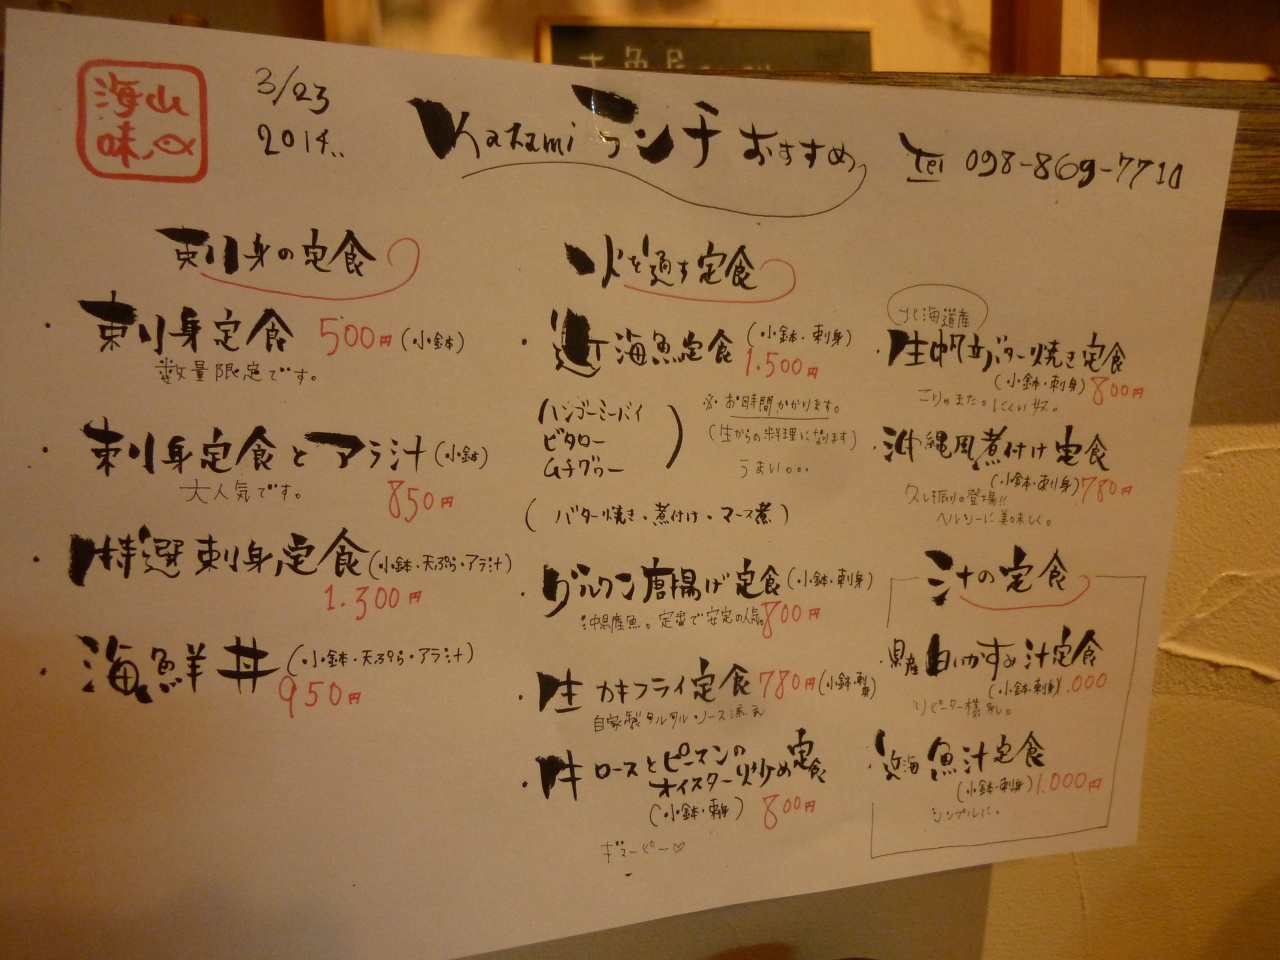 海山
味
3/23
2014..
Katamiランチおすすめ
tel 098-869-7710
刺身の定食
・刺身定食 500円(小鉢)
数量限定です。
・刺身定食とアラ汁(小鉢)
大人気です。 850円
・特選刺身定食(小鉢・天ぷら・アラ汁)
1.300円
・海鮮丼(小鉢・天ぷら・アラ汁)
950円
火を通す定食
・近海魚定食(小鉢・刺身)
1.500円
ハンゴーミーバイ
ビタロー
ムチグゥー
※お時間かかります。
(生からの料理になります)
うまい...
(バター焼き・煮付け・マース煮)
・グルクン唐揚げ定食(小鉢・刺身)
沖県産魚。定番で安定の人気。800円
・生カキフライ定食780円(小鉢・刺身)
自家製タルタルソース添え
・牛ロースとピーマンの
オイスター炒め定食
(小鉢・刺身) 800円
ギューピー♡
北海道産
・生帆立バター焼き定食
(小鉢・刺身)800円
こりゃまた。にくい奴。
・沖縄風煮付け定食
(小鉢・刺身)780円
久し振りの登場!!
ヘルシーに美味しく。
汁の定食
・県産白いかすみ汁定食
(小鉢・刺身)1.000
リピーター様多し。
・近海魚汁定食
(小鉢・刺身)1.000円
シンプルに。